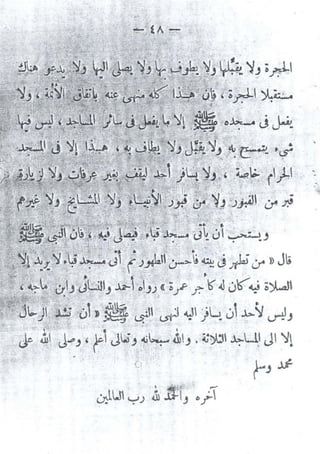 — ٤٨ —
الحجرة ولا يقبّلها ولا يطوف بها ولا يصلى اليها ولا يدعو هناك
مستقبلا الحجرة ، فان هذا كله منهى عنه باتفاق الأئمة ، ولا
يفعل فى مسجده ﷺ إلا ما يفعل فى سائر المساجد ، ليس فيها
شىء يتمسح به ولا يقبّل ولا يطاف به ، هذا إلا فى المسجد
الحرام خاصة ، ولا يسافر أحد ليقف بغير عرفات ولا لزيارة
قبر من القبور ولا من قبور الأنبياء ولا المشايخ ولا غيرهم
ويستحب أن يأتى مسجد قباء فيصلى فيه ، فان النبى ﷺ
قال « من تطهر فى بيته فأحسن الطهور ثم أتى مسجد قباء لا يريد إلا
الصلاة فيه كان له كأجر عمرة » رواه أحمد والنسائى وابن ماجه ،
وليس لأحد أن يسافر اليه لنهى النبى ﷺ « أن تشد الرحال
إلا الى المساجد الثلاثة . والله سبحانه وتعالى أعلم ، وصلى الله على
محمد وسلم
آخره والحمد لله رب العالمين